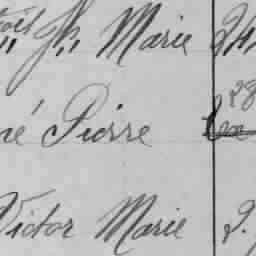 Jh Marie 24
né Pierre 28
Victor Marie 2.